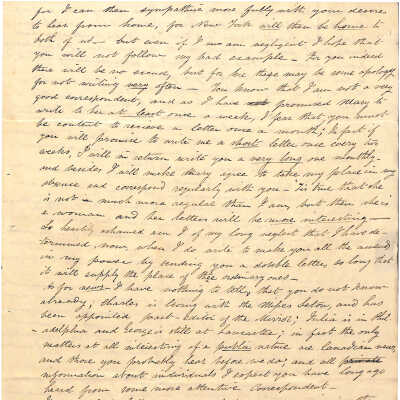 for I can then sympathise more fully with your desire
to hear from home, for New York will then be home to
both of us — but even if I am am negligent I hope that
you will not follow my bad example — For you indeed
there will be no excuse, but for me there may be some apology
for not writing very often — You know that I am not a very
good correspondent, and as I have promised Mary to
write to her at least once a week, I fear that you must
be content to receive a letter once a month; In fact if
you will promise to write me a short letter once every two
weeks, I will in return write you a very long one monthly —
and besides I will make Mary agree to take my place in my
absence and correspond regularly with you — Tis true that she
is not much more regular than I am, but then she is
a woman and her letters will be more interesting —
So heartily ashamed am I of my long neglect that I have de-
termined now, when I do write to make you all the amends
in my power by sending you a double letter, so long that
it will supply the place of three ordinary ones —
As for news I have nothing to tell, that you do not know
already; Charles is living with the Misses and has
been appointed part-Editor of the Mirror; Julia is in Phil-
adelphia and George is still at Lancaster; in fact the only
matters at all interesting of a public nature are Canadian news,
and those you probably hear before we do; and all
information about individuals I expect you have long ago
heard from some more attentive correspondent —